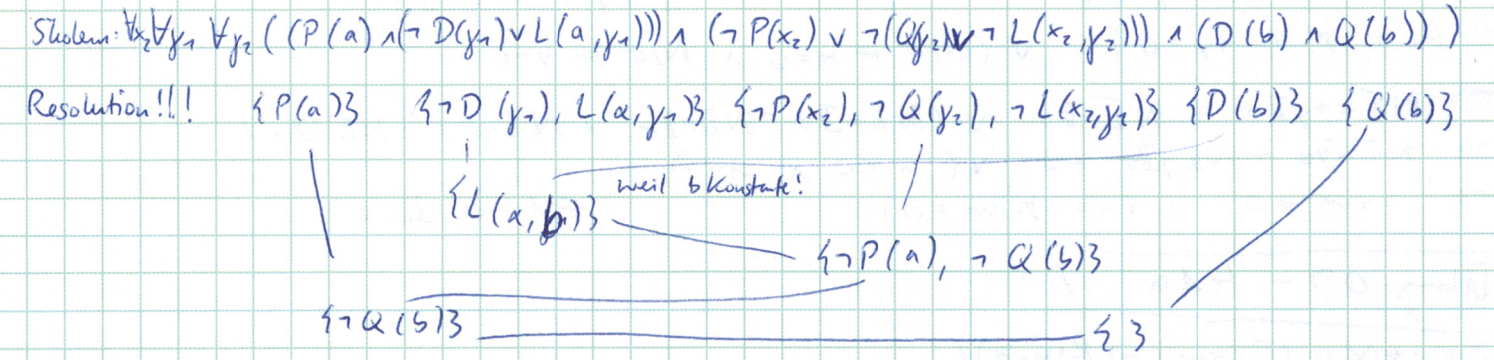 Skolem: ∀x₂∀y₁ ∀y₂ ( (P(a) ∧ (¬D(y₁) ∨ L(a,y₁))) ∧ (¬P(x₂) ∨ ¬(Q(y₂) ∨ ¬L(x₂,y₂))) ∧ (D(b) ∧ Q(b)) )
Resolution!!! {P(a)} {¬D(y₁), L(a,y₁)} {¬P(x₂), ¬Q(y₂), ¬L(x₂,y₂)} {D(b)} {Q(b)}
weil b Konstante!
{L(a,b)}
{¬P(a), ¬Q(b)}
{¬Q(b)} { }